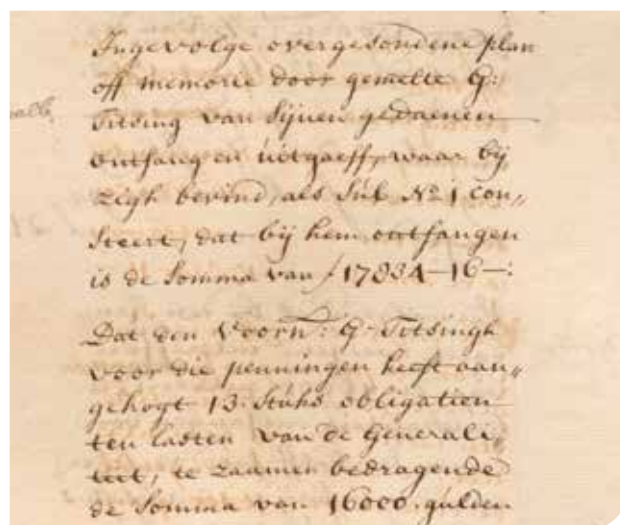 Ingevolge overgesondene plan
off memorie door gemelte G:
Titsing van sijnen gedaenen
ontfang en uitgaeff, waar bij
zigh bevind, als sub No 1 con„
steert, dat bij hem ontfangen
is de somma van ƒ 17834-16-:
Dat den Voorn: G. Titsingh
voor die penningen heeft aan„
gehogt 13. stuks obligatien
ten lasten van de Generali„
teit, te zaamen bedragende
de somma van 16000. gulden